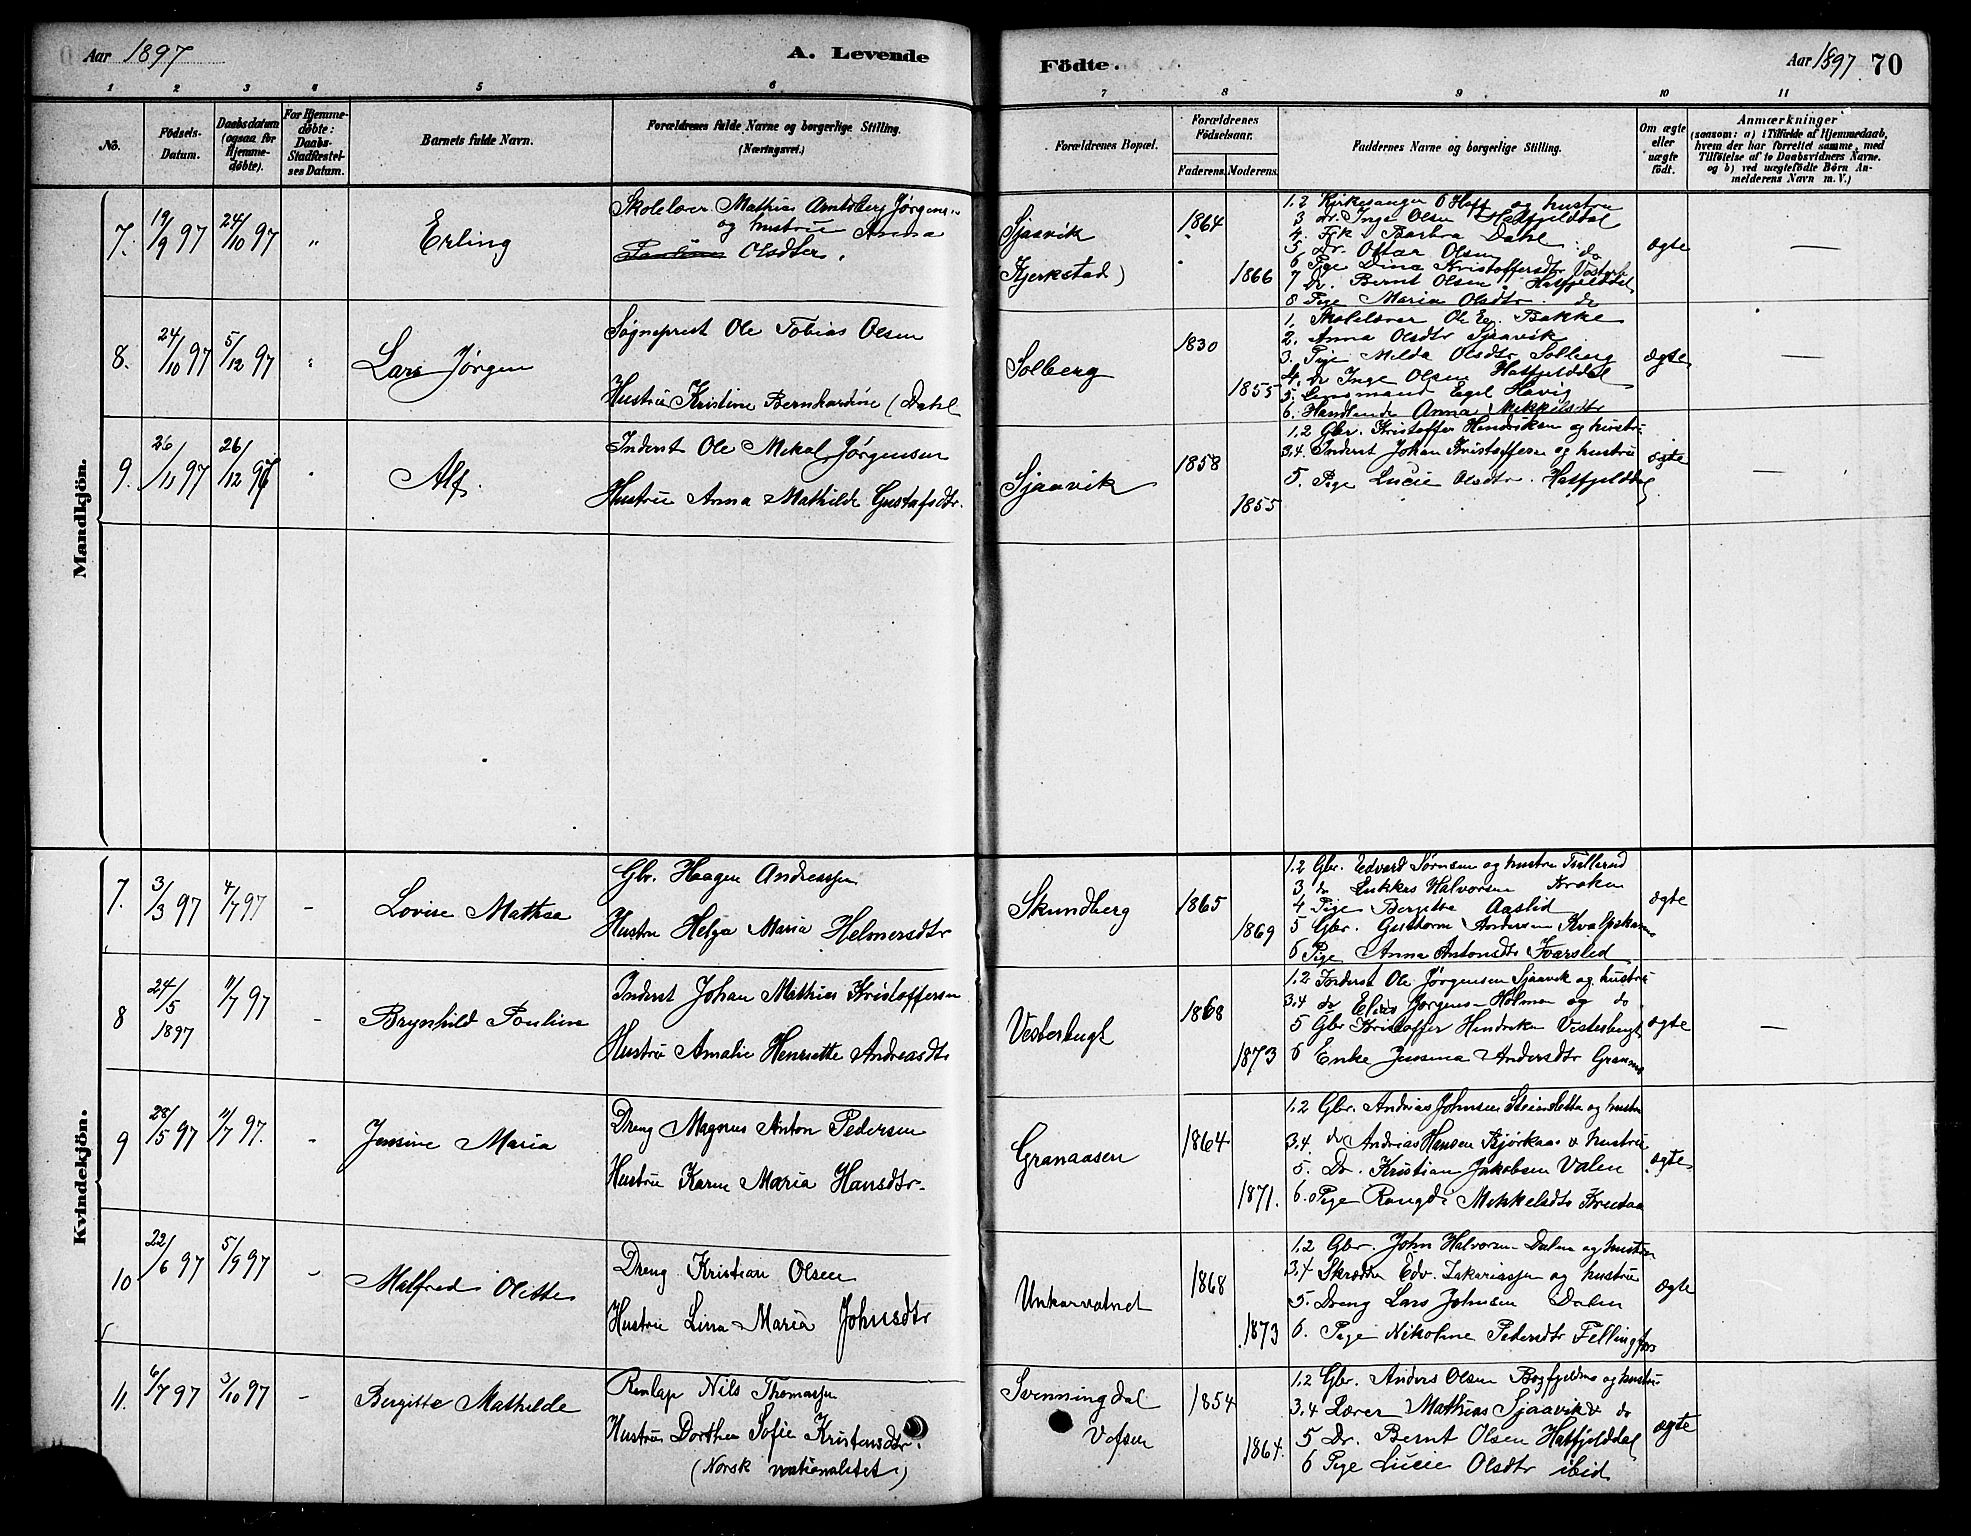 Aar 1897 A. Levende
Födte. Aar 1897. 70
1 2 3 4 5 6 7 8 9 10 11
No.
Födsels-Datum.
Daabsdatum (ogsaa for Hjemmedøbte).
For Hjemmedøbte: Daabs-Stadfæstelses Datum.
Barnets fulde Navn.
Forældrenes fulde Navne og borgerlige Stilling. (Næringsvei.)
Forældrenes Bopæl.
Forældrenes Födselsaar.
Faderens. Moderens.
Faddernes Navne og borgerlige Stilling.
Om ægte eller uægte födt.
Anmærkninger
(saasom: a) i Tilfælde af Hjemmedaab, hvem der har forrettet samme, med Tilföielse af to Daabsvidners Navne. og b) ved uægtefödte Börn Anmelderens Navn m. V.)
Mandkjön.
7. 19/9 97 24/10 97 " Erling
Skolelærer Mathias Amtsberg Jørgens..
og hustru Anna
Olsdter.
Sjaavik
Kjerkstad)
1864
1866
1.2 Kirkesanger O Hoff og hustru
3 dr. Inge Olsen Hatfjelddal
4. Frk Barbra Dahl
5. Dr. Ottar Olsen do
6 Pige Dina Kristoffersdtr Vesterb
7 Dr. Bernt Olsen Hatfjelddal
8 Pige Maria Olsdtr. do
ægte —
8. 24/10 97 5/12 97 " Lars Jørgen
Sogneprest Ole Tobias Olsen
Hustru Kristine Bernhardine (Dahl
Solberg
1830
1855
1. Skolelærer Ol. Eg. Bakke
2. Anna Olsdtr Sjaavik
3. Pige Milda Olsdtr Solberg
4. dr Inge Olsen Hatfjelddal
5. Lensmand Egel Havig
6. Handlende Anna Mikkelsdtr
ægte —
9. 26/11 97 26/12 97 " Alf.
Inderst Ole Mekal Jørgensen
Hustru Anna Mathilde Gustafsdtr.
Sjaavik
1858
1855
1.2 Gbr. Kristoffer Hendriksen og hustru
3.4. Inderst Johan Kristoffersen og hustru
5. Pige Lucie Olsdtr. Hatfjelddal
ægte —
Kvindekjön.
7. 3/3 97 4/7 97 – Lovise Mathea
Gbr. Haagen Andreassen
Hustru Helga Maria Helmersdtr
Skundberg
1865
1869
1.2 Gbr. Edvard Sørensen og hustru
3 do Lukkas Halvorsen Kroken
4 Pige Bergitte Aaslid
5 Gbr. Guthorm Andersen
6 Pige Anna Antonsdtr Kvarslid
ægte
8 24/5 1897 11/7 97 – Brynhild Pouline
Inderst Johan Mathias Kristoffersen
Hustru Amalie Henriette Andreasdtr
Vesterbugt
1868
1873
1.2 Inderst Ole Jørgensen Sjaavik og hustru
3.4 do Elias Jørgens– Holmen og do
5 Gbr Kristoffer Hendriksen Vesterbugt
6 Enke Jensina Andersdtr
ægte —
9 28/5 97 11/7 97. – Jensine Maria
Dreng Magnus Anton Pedersen
Hustru Karen Maria Hansdtr.
Granaasen
1864
1871.
1.2 Gbr. Andrias Johnsen Steinsletta og hustru
3.4. do Andrias Hansen Bjørkaas & hustru
5. Dr. Kristian Jakobsen Valen
6. Pige Rangdi Mikkelsdtr Krutaa
ægte
10 22/6 97 5/9 97 – Malfred Olette
Dreng Kristian Olsen
Hustru Lina Maria Johnsdtr
Unkarvatnet
1868
1873
1.2 Gbr. John Halvorsen Dalen og hustru
3.4 Skrædder Edv. Zakariassen og hustru
5. Dreng Lars Johnsen Dalen
6. Pige Nikoline Pedersdtr Fellingfors
ægte
11. 6/7 97 3/10 97 – Bergitte Mathilde
Renlap Nils Thomassen
Hustru Dorthea Sofie Kristensdtr.
(Norsk nationalitet)
Svenningdal
Vefsen
1854
1864.
1.2 Gbr. Anders Olsen og hustru
3.4 Lærer Mathias Sjaavik & do
5 Dr. Bernt Olsen Hatfjelddal
6 Pige Lucie Olsdtr ibid
ægte